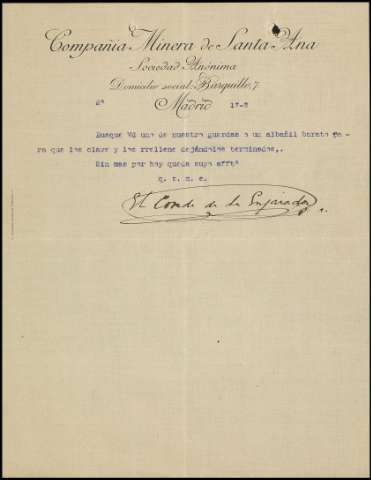 Compañía Minera de Santa Ana
Sociedad Anónima
Domicilio social: Barquillo, 7
Madrid
Busque Vd uno de nuestro guardas o un albañil barato pa-
ra que los clave y los rrellene dejándolos terminados,.
Sin mas por hoy queda suyo afftº
q. e. m. e.
El Conde de la